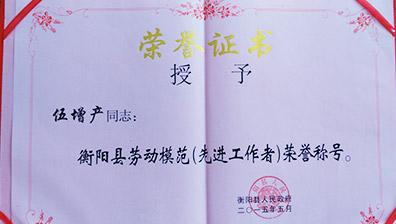 荣誉证书
授予
伍增产同志：
衡阳县劳动模范(先进工作者)荣誉称号。
衡阳县人民政府
二〇一五年五月